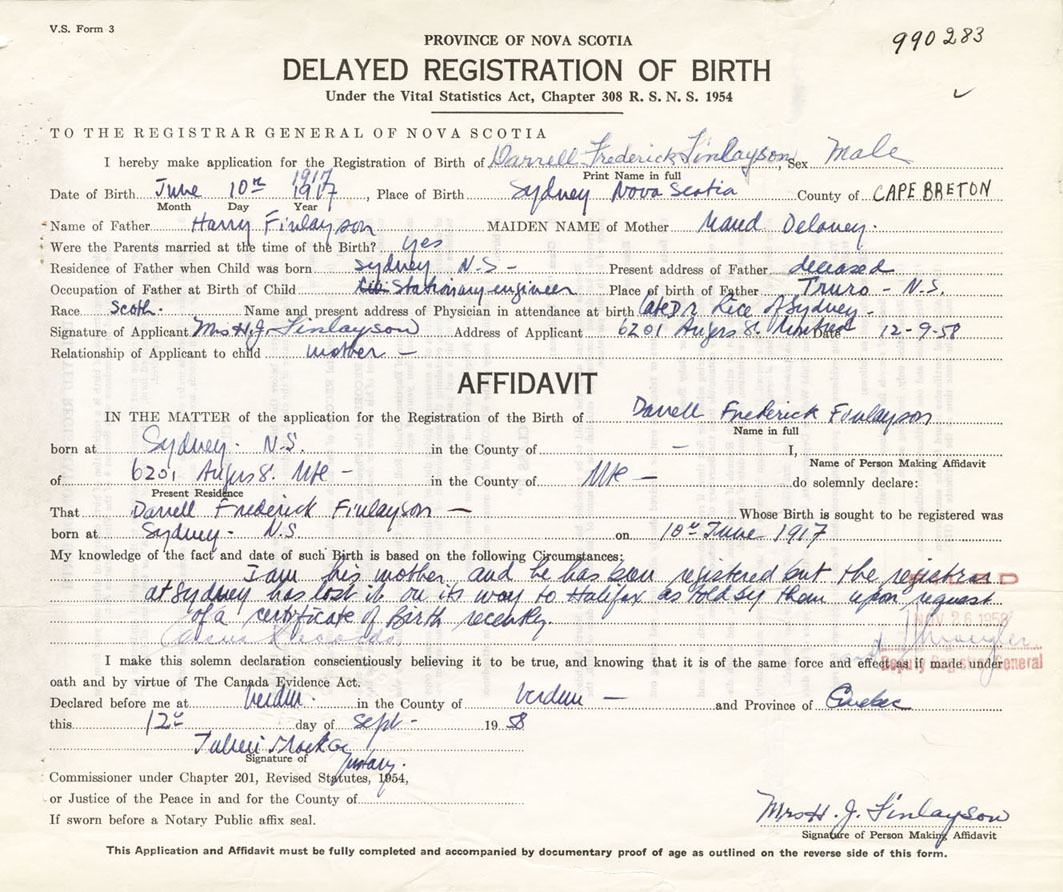 V.S. Form 3
990283
PROVINCE OF NOVA SCOTIA
DELAYED REGISTRATION OF BIRTH
Under the Vital Statistics Act, Chapter 308 R. S. N. S. 1954
TO THE REGISTRAR GENERAL OF NOVA SCOTIA
I hereby make application for the Registration of Birth of Darrell Frederick Finlayson, Sex Male
Print Name in full
1917
Date of Birth June 10th 1917, Place of Birth Sydney Nova Scotia County of CAPE BRETON
Month Day Year
Name of Father Harry Finlayson MAIDEN NAME of Mother Maud Deloney.
Were the Parents married at the time of the Birth? yes
Residence of Father when Child was born Sydney N.S- Present address of Father deceased
Occupation of Father at Birth of Child Stationary engineer Place of birth of Father Truro - N.S.
Race Scoth. Name and present address of Physician in attendance at birth Late Dr Rice of Sydney-
Signature of Applicant Mrs H.J. Finlayson Address of Applicant 6201 Date 12-9-58
Relationship of Applicant to child mother -
AFFIDAVIT
IN THE MATTER of the application for the Registration of the Birth of Darrell Frederick Finlayson
Name in full
born at Sydney. N.S. in the County of - I,
Name of Person Making Affidavit
of 6201 in the County of do solemnly declare:
Present Residence
That Darrell Frederick Finlayson - Whose Birth is sought to be registered was
born at Sydney- N.S. on 10th June 1917
My knowledge of the fact and date of such Birth is based on the following Circumstances:
I am his mother, and he has been registered but the registrar
at Sydney has lost it on its way to Halifax as told by them upon request
of a certificate of Birth recently.
Census Records
NOV 26 1958
Deputy Registrar General
I make this solemn declaration conscientiously believing it to be true, and knowing that it is of the same force and effect as if made under
oath and by virtue of The Canada Evidence Act.
Declared before me at Verdun. in the County of Verdun - and Province of Quebec
this 12th day of Sept- 1958
Signature of Notary.
Commissioner under Chapter 201, Revised Statutes, 1954,
or Justice of the Peace in and for the County of
If sworn before a Notary Public affix seal.
Mrs H. J. Finlayson
Signature of Person Making Affidavit
This Application and Affidavit must be fully completed and accompanied by documentary proof of age as outlined on the reverse side of this form.